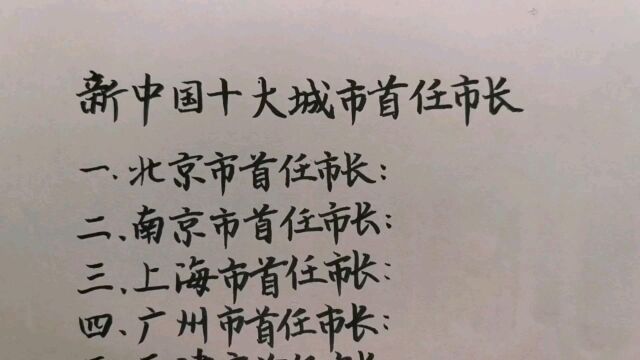 新中国十大城市首任市长
一.北京市首任市长:
二、南京市首任市长:
三、上海市首任市长:
四、广州市首任市长:
五、天津市首任市长